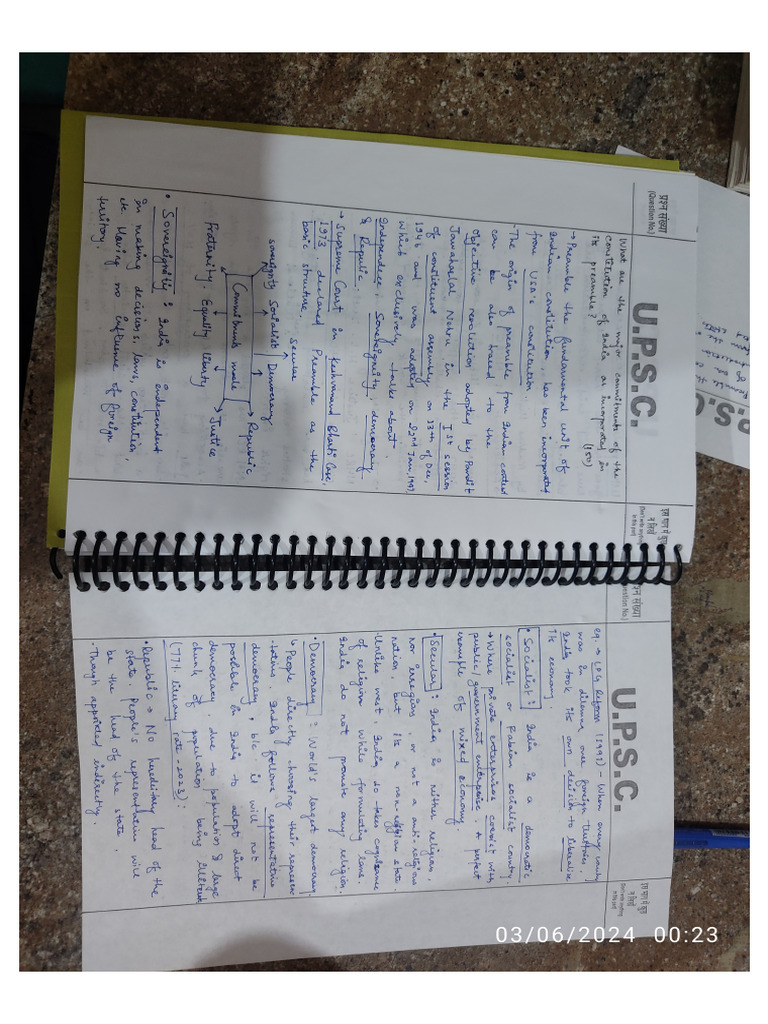 प्रश्न संख्या
(Question No.)
U.P.S.C.
इस भाग में कुछ
न लिखें
Don't write anything
in this part
What are the major commitments of the
constitution of India as incorporated in
its preamble? (150)
→ Preamble the fundamental unit of
Indian constitution, has been incorporated
from USA's constitution
The origin of preamble from Indian context
can be also traced to the
objective resolution adopted by Pandit
Jawaharlal Nehru in the Ist session
of constituent assembly on 13th of Dec,
1946 and was adopted on 22nd Jan, 1947
which exclusively talks about
Independence, Sovereignity, democracy
& Republic.
→ Supreme Court in Keshvanand Bharti Case,
1973, declared Preamble as the
basic structure.
secular
sovereignty Socialist Democracy Republic
Commitments made
Fraternity Equality liberty Justice
• Sovereignity : India is independent
in making decisions, laws, constitution,
etc. Having no influence of foreign
territory.
प्रश्न संख्या
(Question No.)
U.P.S.C.
इस भाग में कुछ
न लिखें
Don't write anything
in this part
eg. → LPG Reform (1991) - When every country
was in dilemma over foreign
India took its own decision to liberalise
its economy
• Socialist : India is a democratic
socialist or Fabian socialist country.
→ Where private enterprises coexist with
public/government enterprise. A perfect
example of mixed economy
• Secular : India is neither religion,
nor irregion, or not a anti-religious
nation, but its a state.
Unlike west, India do takes cognizance
of religion while formulating laws.
India do not promote any religion.
• Democracy : World's largest democracy.
↳ People directly choosing their represen-
tatives. India follows representative
democracy, b/c it will not be
possible in India to adopt direct
democracy, due to population & large
chunk of population being illiterate
(77% literacy rate - 2023).
• Republic → No hereditary head of the
state. People's representative will
be the head of the state.
- Though appointed indirectly.
03/06/2024 00:23